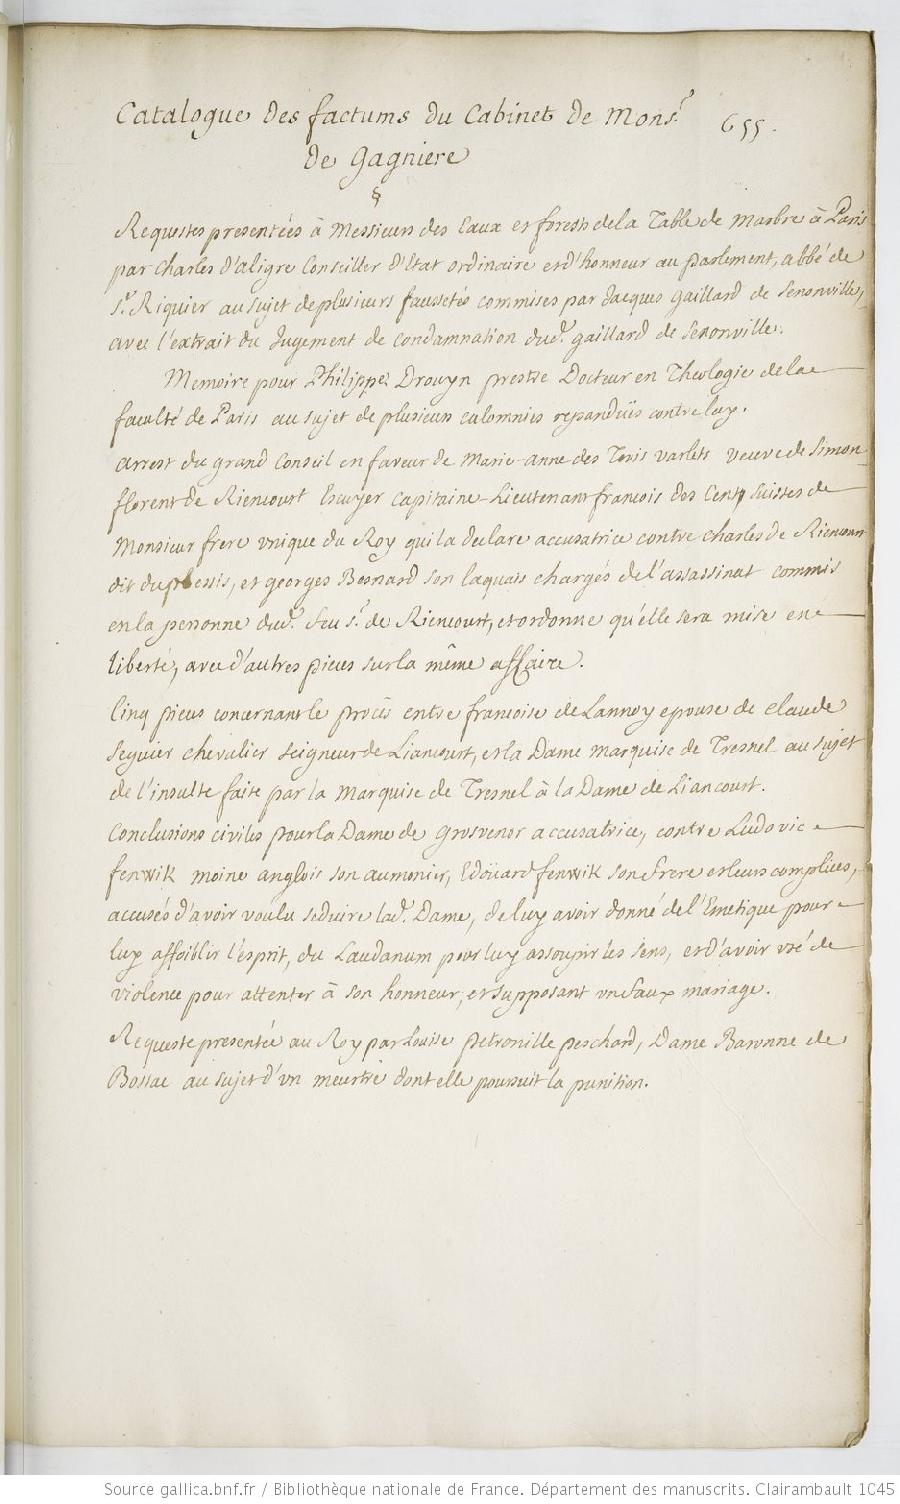 Catalogue des factums du Cabinet de Monsr.
655.
de Gagniere
§
Requestes presentées à Messieurs des Eaux et forests de la Table de Marbre à Paris
par Charles d'aligre Conseiller d'Etat ordinaire et d'honneur au parlement, abbé de
St. Riquier au sujet de plusieurs faussetés commises par Jacques Gaillard de Senonville,
avec l'extrait du Jugement de condamnation dud. gaillard de Senonville.
Memoire pour Philippe Drouyn prestre Docteur en Theologie de la
faculté de Paris au sujet de plusieurs calomnies repanduës contre luy.
arrest du grand Conseil en faveur de Marie-anne des Toris varlets veuve de Simon
florent de Riencourt Escuyer Capitaine-Lieutenant francois des Cent Suisses de
Monsieur frere vnique du Roy qui la declare accusatrice contre charles de Riencour
dit duplessis, et georges Besnard son laquais chargés de l'assassinat commis
en la personne dud. feu Sr. de Riencourt, et ordonne qu'elle sera mise en
liberté, avec d'autres pieces sur la même affaire.
Cinq pieces concernant le procès entre francoise de Lannoy epouse de claude
Seguier chevalier Seigneur de Liancourt, et la Dame Marquise de Tresnel au sujet
de l'insulte faite par la Marquise de Tresnel à la Dame de Liancourt.
Conclusions civiles pour la Dame de Grosvenor accusatrice, contre Ludovic
fenwik moine anglois son aumonier, Edoüard fenwik son frere et leurs complices,
accusés d'avoir voulu seduire lad. Dame, de luy avoir donné de l'Emetique pour
luy affoiblir l'esprit, du Laudanum pour luy assoupir les sens, et d'avoir vsé de
violence pour attenter à son honneur, et supposant vn faux mariage.
Requeste presentée au Roy par Louise petronille peschard, Dame Baronne de
Bossac au sujet d'vn meurtre dont elle poursuit la punition.
Source gallica.bnf.fr / Bibliothèque nationale de France. Département des manuscrits. Clairambault 1045